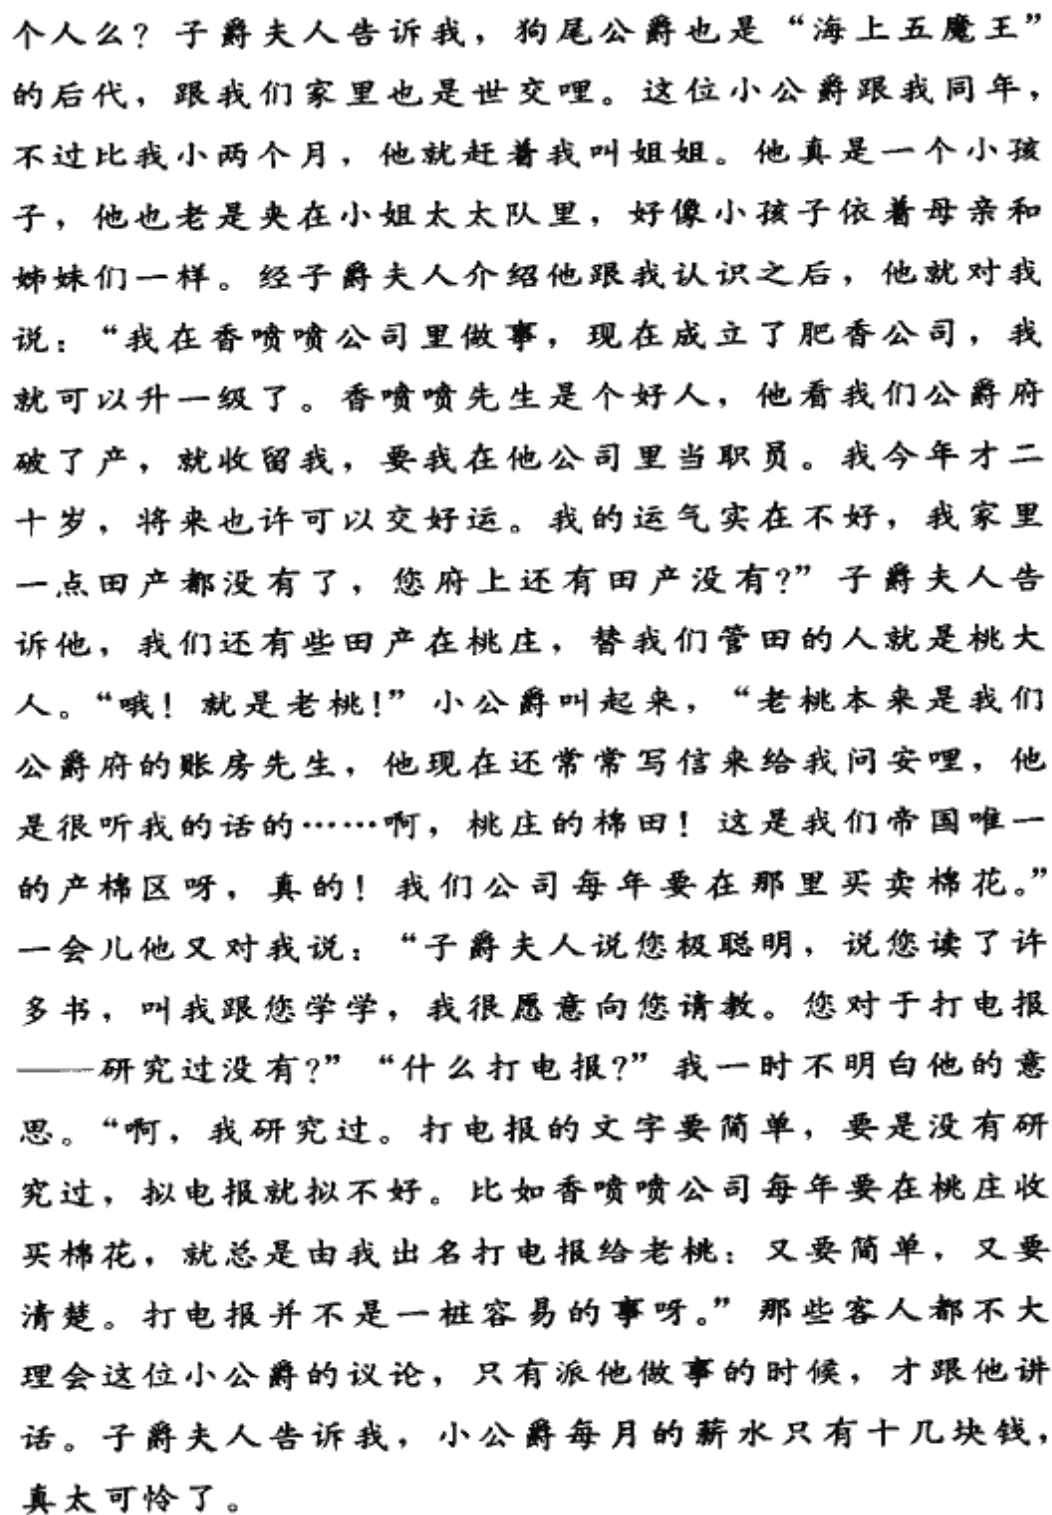 个人么？子爵夫人告诉我，狗尾公爵也是“海上五魔王”
的后代，跟我们家里也是世交哩。这位小公爵跟我同年，
不过比我小两个月，他就赶着我叫姐姐。他真是一个小孩
子，他也老是夹在小姐太太队里，好像小孩子依着母亲和
姊妹们一样。经子爵夫人介绍他跟我认识之后，他就对我
说：“我在香喷喷公司里做事，现在成立了肥香公司，我
就可以升一级了。香喷喷先生是个好人，他看我们公爵府
破了产，就收留我，要我在他公司里当职员。我今年才二
十岁，将来也许可以交好运。我的运气实在不好，我家里
一点田产都没有了，您府上还有田产没有？”子爵夫人告
诉他，我们还有些田产在桃庄，替我们管田的人就是桃大
人。“哦！就是老桃！”小公爵叫起来，“老桃本来是我们
公爵府的账房先生，他现在还常常写信来给我问安哩，他
是很听我的话的……啊，桃庄的棉田！这是我们帝国唯一
的产棉区呀，真的！我们公司每年要在那里买卖棉花。”
一会儿他又对我说：“子爵夫人说您极聪明，说您读了许
多书，叫我跟您学学，我很愿意向您请教。您对于打电报
——研究过没有？”“什么打电报？”我一时不明白他的意
思。“啊，我研究过。打电报的文字要简单，要是没有研
究过，拟电报就拟不好。比如香喷喷公司每年要在桃庄收
买棉花，就总是由我出名打电报给老桃：又要简单，又要
清楚。打电报并不是一桩容易的事呀。”那些客人都不大
理会这位小公爵的议论，只有派他做事的时候，才跟他讲
话。子爵夫人告诉我，小公爵每月的薪水只有十几块钱，
真太可怜了。